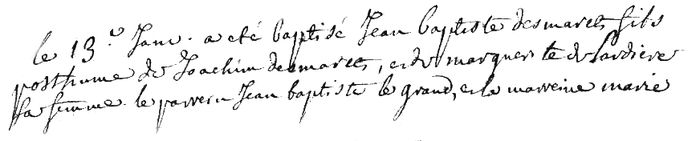 le 13.e Janv. a eté baptisé Jean baptiste desmarets fils
posthume de Joachim desmarets, et de marguerite de lardiere
sa femme. le parrein Jean baptiste le grand, et la marreine marie